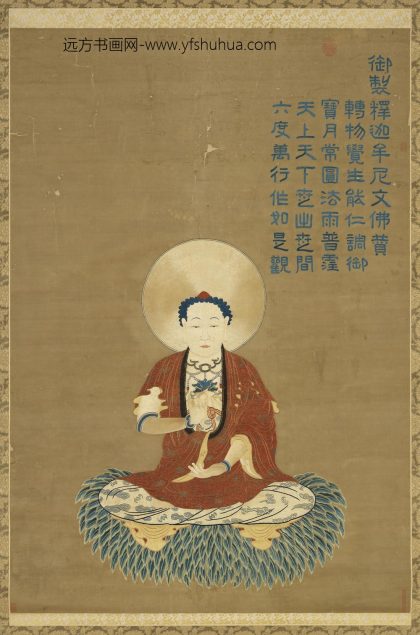 远方书画网-www.yfshuhua.com
御製釋迦牟尼文佛贊
轉物覺生能仁調御
寶月常圓法雨普
天上天下世出世間
六度萬行作如是觀